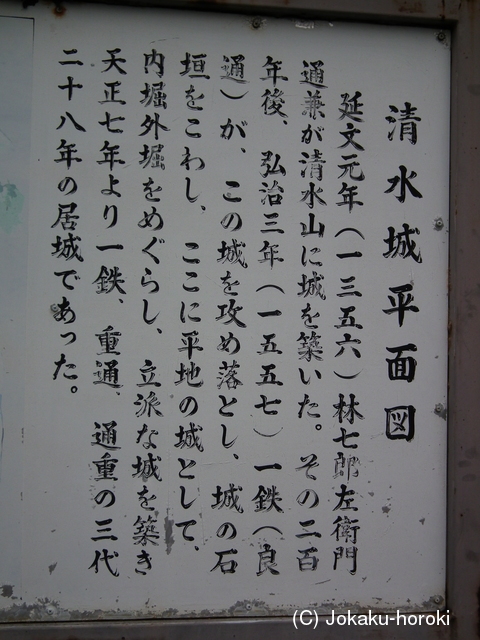 清水城平面図
延文元年（一三五六）林七郎左衛門
通兼が清水山に城を築いた。その二百
年後、弘治三年（一五五七）一鉄（良
通）が、この城を攻め落とし、城の石
垣をこわし、ここに平地の城として、
内堀外堀をめぐらし、立派な城を築き
天正七年より一鉄、重通、通重の三代
二十八年の居城であった。
(C) Jokaku-horoki